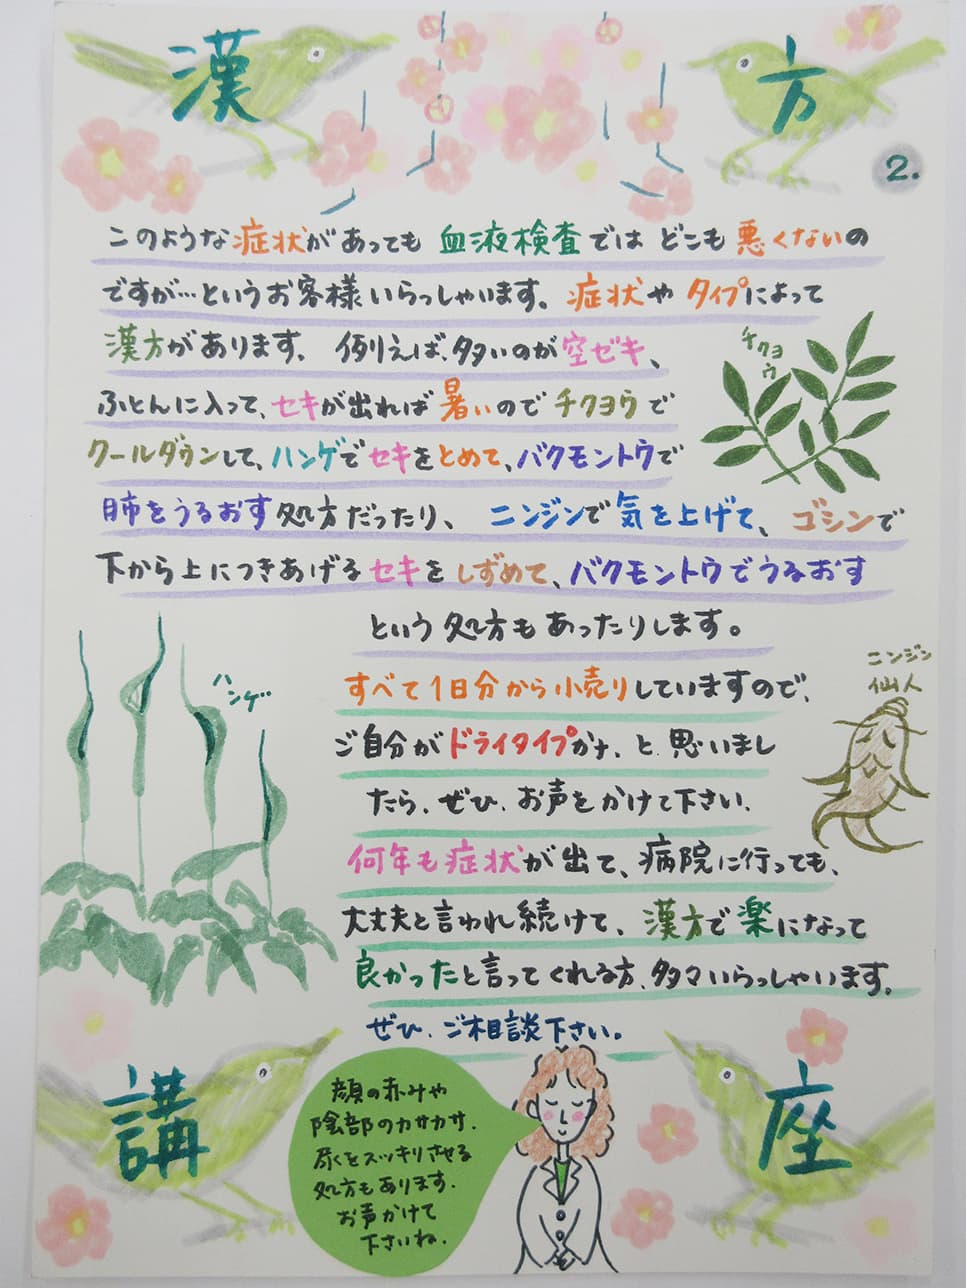 漢方
2.
このような症状があっても血液検査ではどこも悪くないの
ですが…というお客様いらっしゃいます。症状やタイプによって
漢方があります。例えば、多いのが空ゼキ、
ふとんに入って、セキが出れば暑いのでチクヨウで
クールダウンして、ハンゲでセキをとめて、バクモントウで
肺をうるおす処方だったり、ニンジンで気を上げて、ゴシンで
下から上につきあげるセキをしずめて、バクモントウでうるおす
という処方もあったりします。
すべて1日分から小売りしていますので、
ご自分がドライタイプかナ、と思いまし
たら、ぜひ、お声をかけて下さい。
何年も症状が出て、病院に行っても、
大丈夫と言われ続けて、漢方で楽になって
良かったと言ってくれる方、多々いらっしゃいます。
ぜひ、ご相談下さい。
チクヨ
ウ
ハンゲ
ニンジン
仙人
顔の赤みや
陰部のカサカサ、
尿をスッキリさせる
処方もあります。
お声かけて
下さいね。
講座